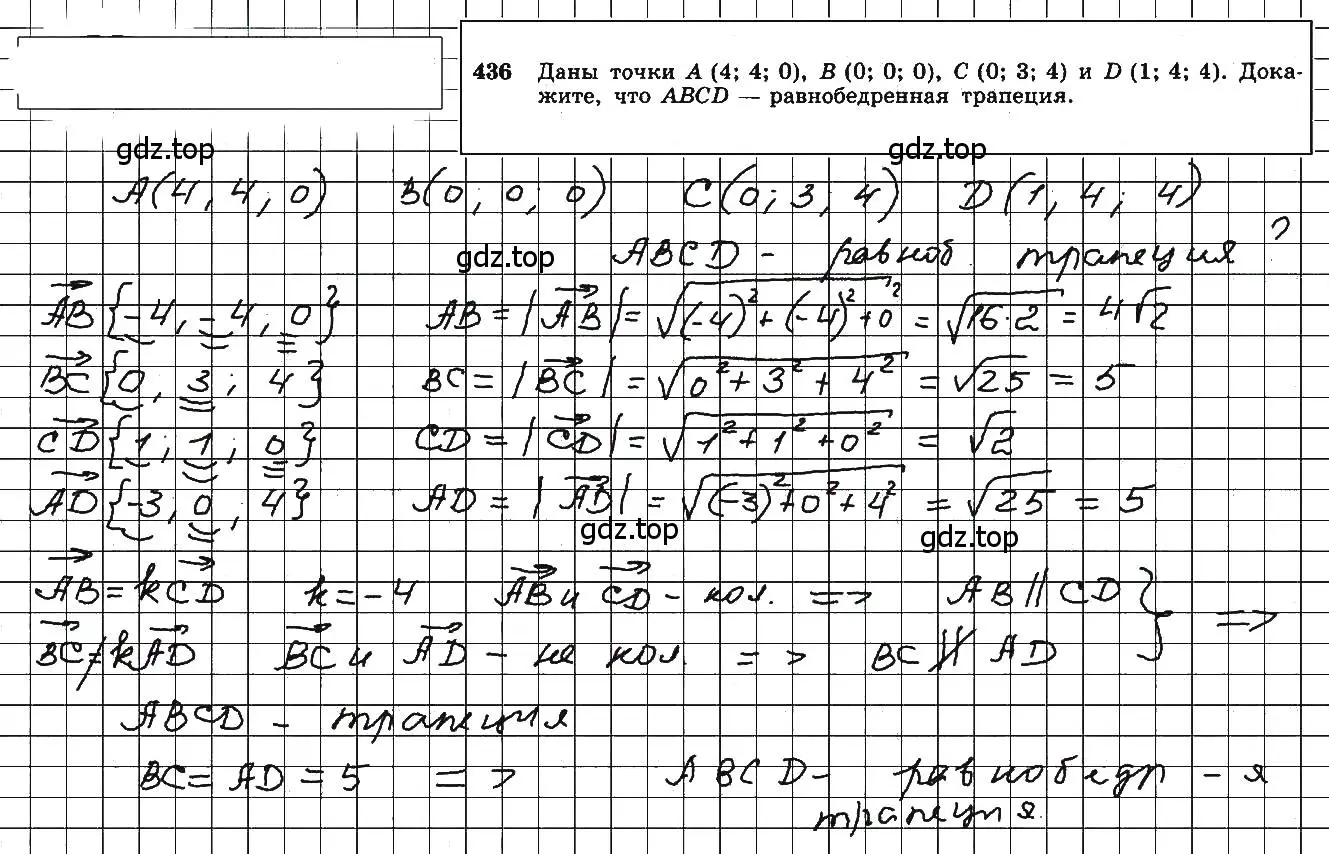 436 Даны точки A (4; 4; 0), B (0; 0; 0), C (0; 3; 4) и D (1; 4; 4). Дока-
жите, что ABCD — равнобедренная трапеция.
gdz.top gdz.top
A(4, 4, 0) B(0, 0, 0) C(0; 3, 4) D(1, 4; 4)
gdz.top ABCD - равноб трапеция ?
\overrightarrow{AB}{-4, -4, 0} AB = |\overrightarrow{AB}| = √((-4)² + (-4)² + 0²) = √(16·2) = 4√2
\overrightarrow{BC}{0, 3; 4} BC = |\overrightarrow{BC}| = √(0² + 3² + 4²) = √25 = 5
\overrightarrow{CD}{1; 1; 0} CD = |\overrightarrow{CD}| = √(1² + 1² + 0²) = √2
\overrightarrow{AD}{-3, 0, 4} AD = |\overrightarrow{AD}| = √((-3)² + 0² + 4²) = √25 = 5
gdz.top gdz.top
\overrightarrow{AB} = k\overrightarrow{CD} k = -4 \overrightarrow{AB} и \overrightarrow{CD} - кол. => AB || CD } =>
\overrightarrow{BC} ≠ k\overrightarrow{AD} \overrightarrow{BC} и \overrightarrow{AD} - не кол => BC ∦ AD
ABCD - трапеция
BC = AD = 5 => ABCD - равнобедр - я
трапеция.